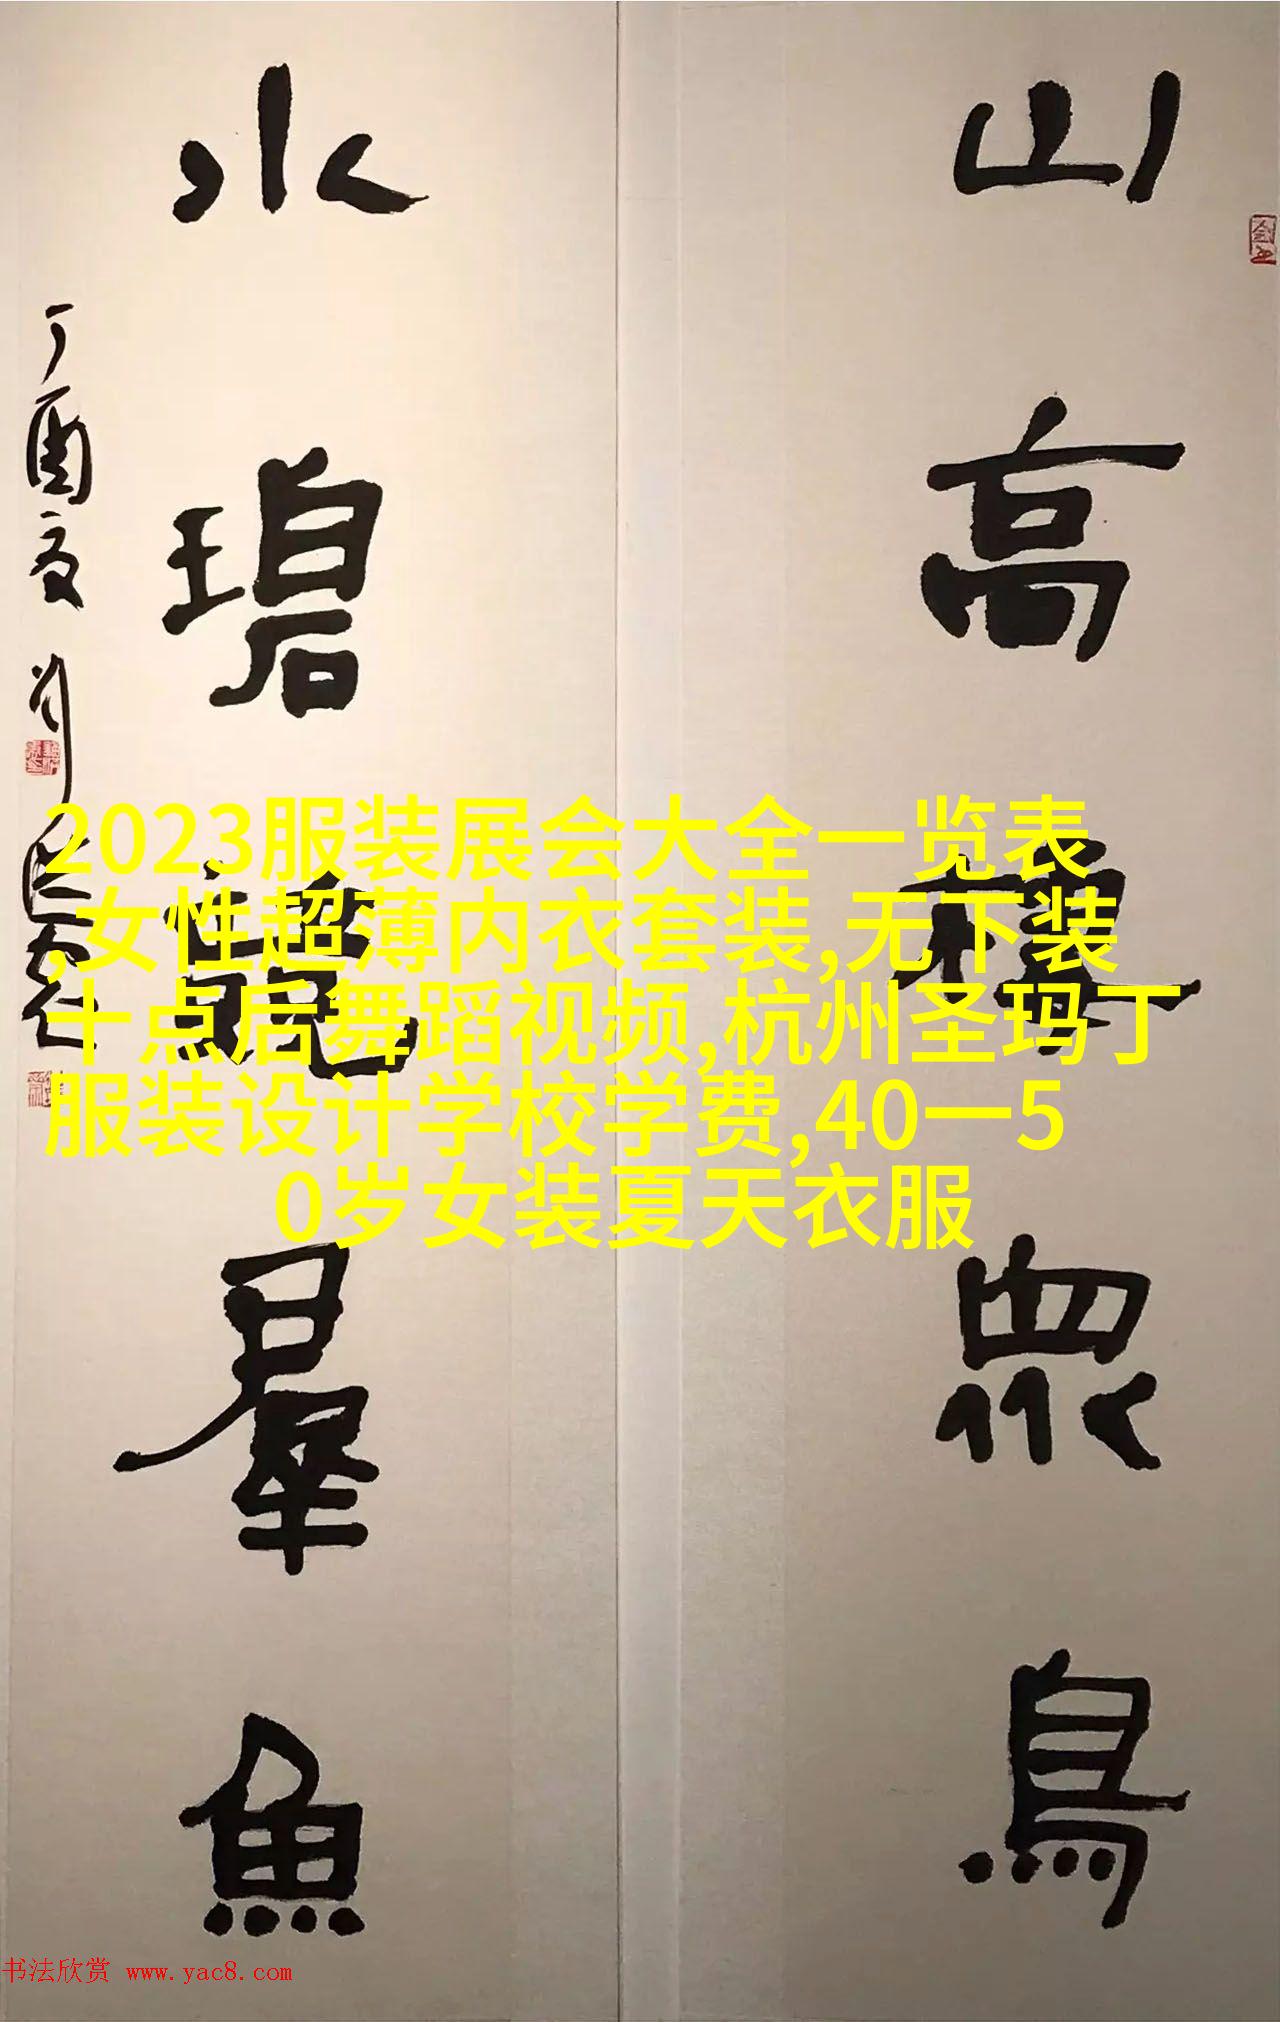 山高眾鳥
水碧羣魚
丁酉夏
2023服装展会大全一览表
,女性超薄内衣套装,无下装
十点后舞蹈视频,杭州圣玛丁
服装设计学校学费,40一5
0岁女装夏天衣服
书法欣赏 www.yac8.com